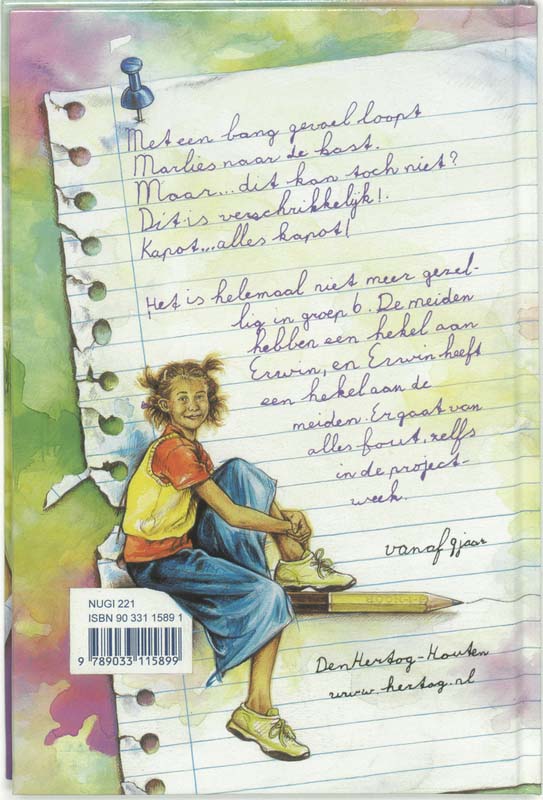 Met een bang gevoel loopt
Marlies naar de kast.
Maar...dit kan toch niet?
Dit is verschrikkelijk!
Kapot...alles kapot!
Het is helemaal niet meer gezel-
lig in groep 6. De meiden
hebben een hekel aan
Erwin, en Erwin heeft
een hekel aan de
meiden. Er gaat van
alles fout, zelfs
in de project-
week.
vanaf 9 jaar
NUGI 221
ISBN 90 331 1589 1
9 789033 115899
Den Hertog-Houten
www.hertog.nl